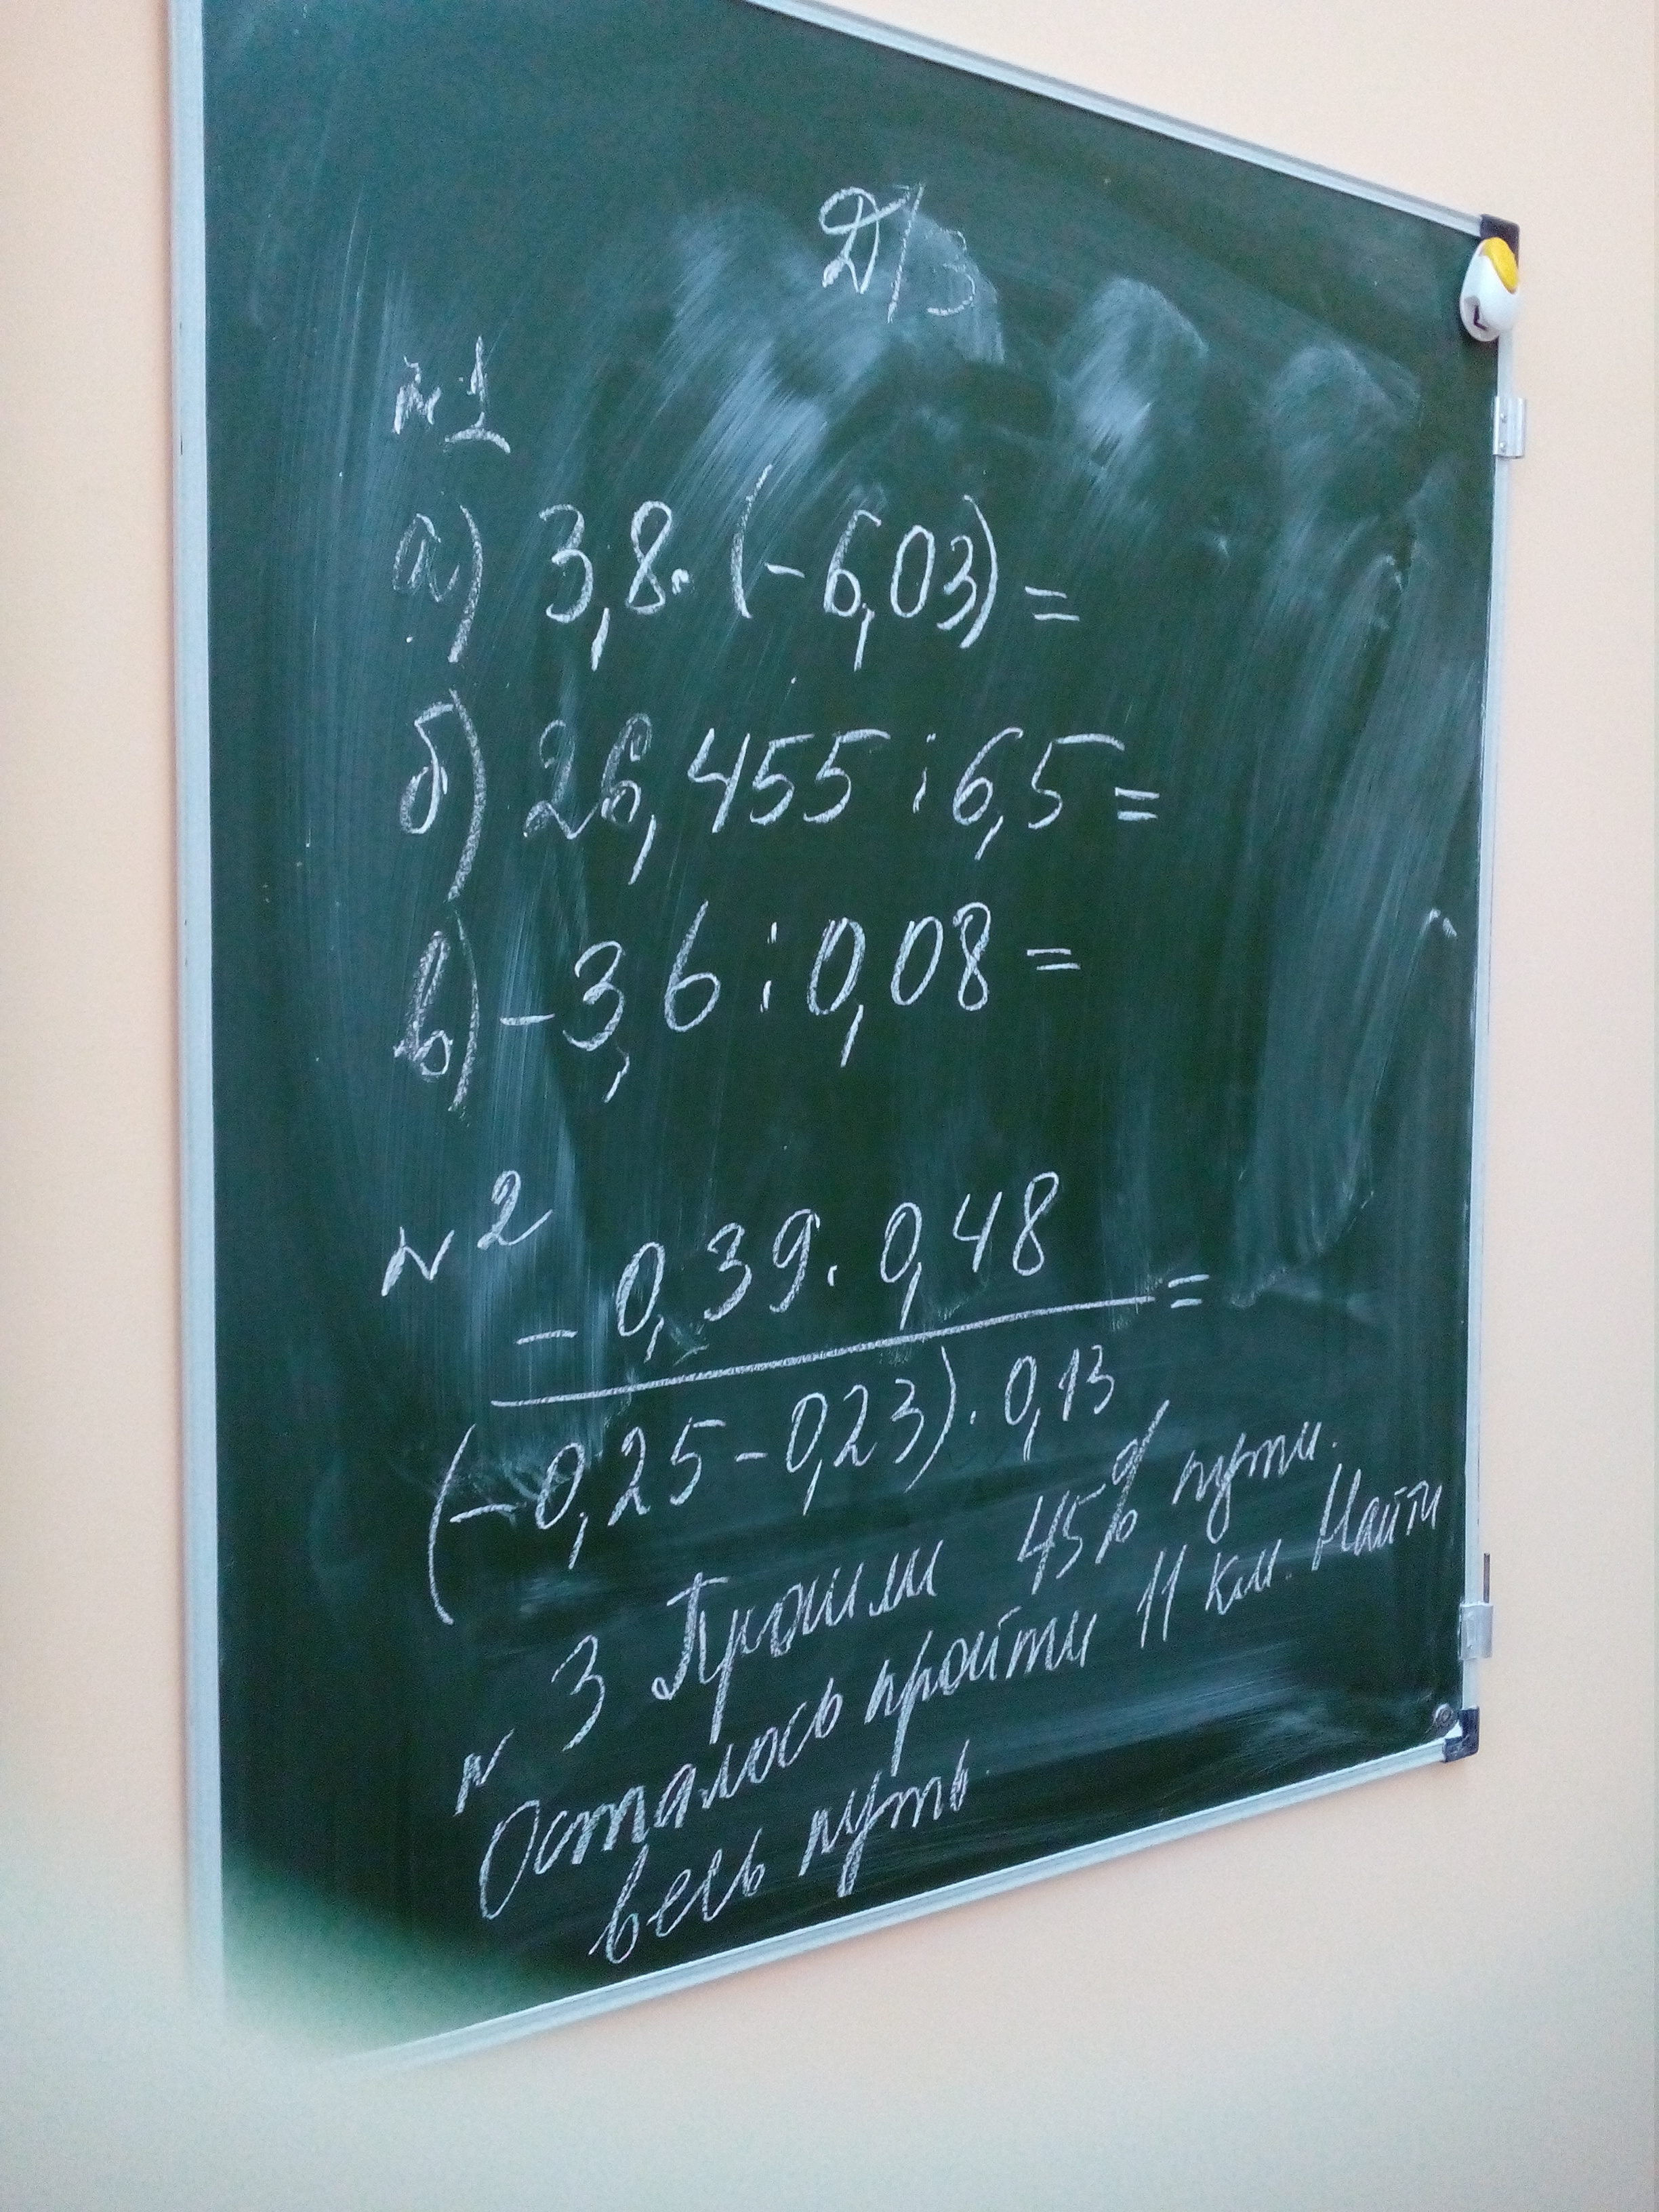 Д/з
№1
а) 3,8·(-6,03)=
б) 26,455:6,5=
в) -3,6:0,08=
№2
-0,39·0,48
=
(-0,25-0,23)·0,13
№3 Прошли 45% пути.
Осталось пройти 11 км. Найти
весь путь.